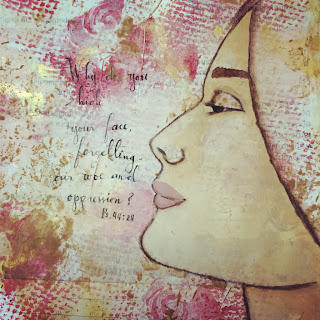 Why do you
hide
your face,
forgetting
our woe and
oppression?
Ps. 44:24